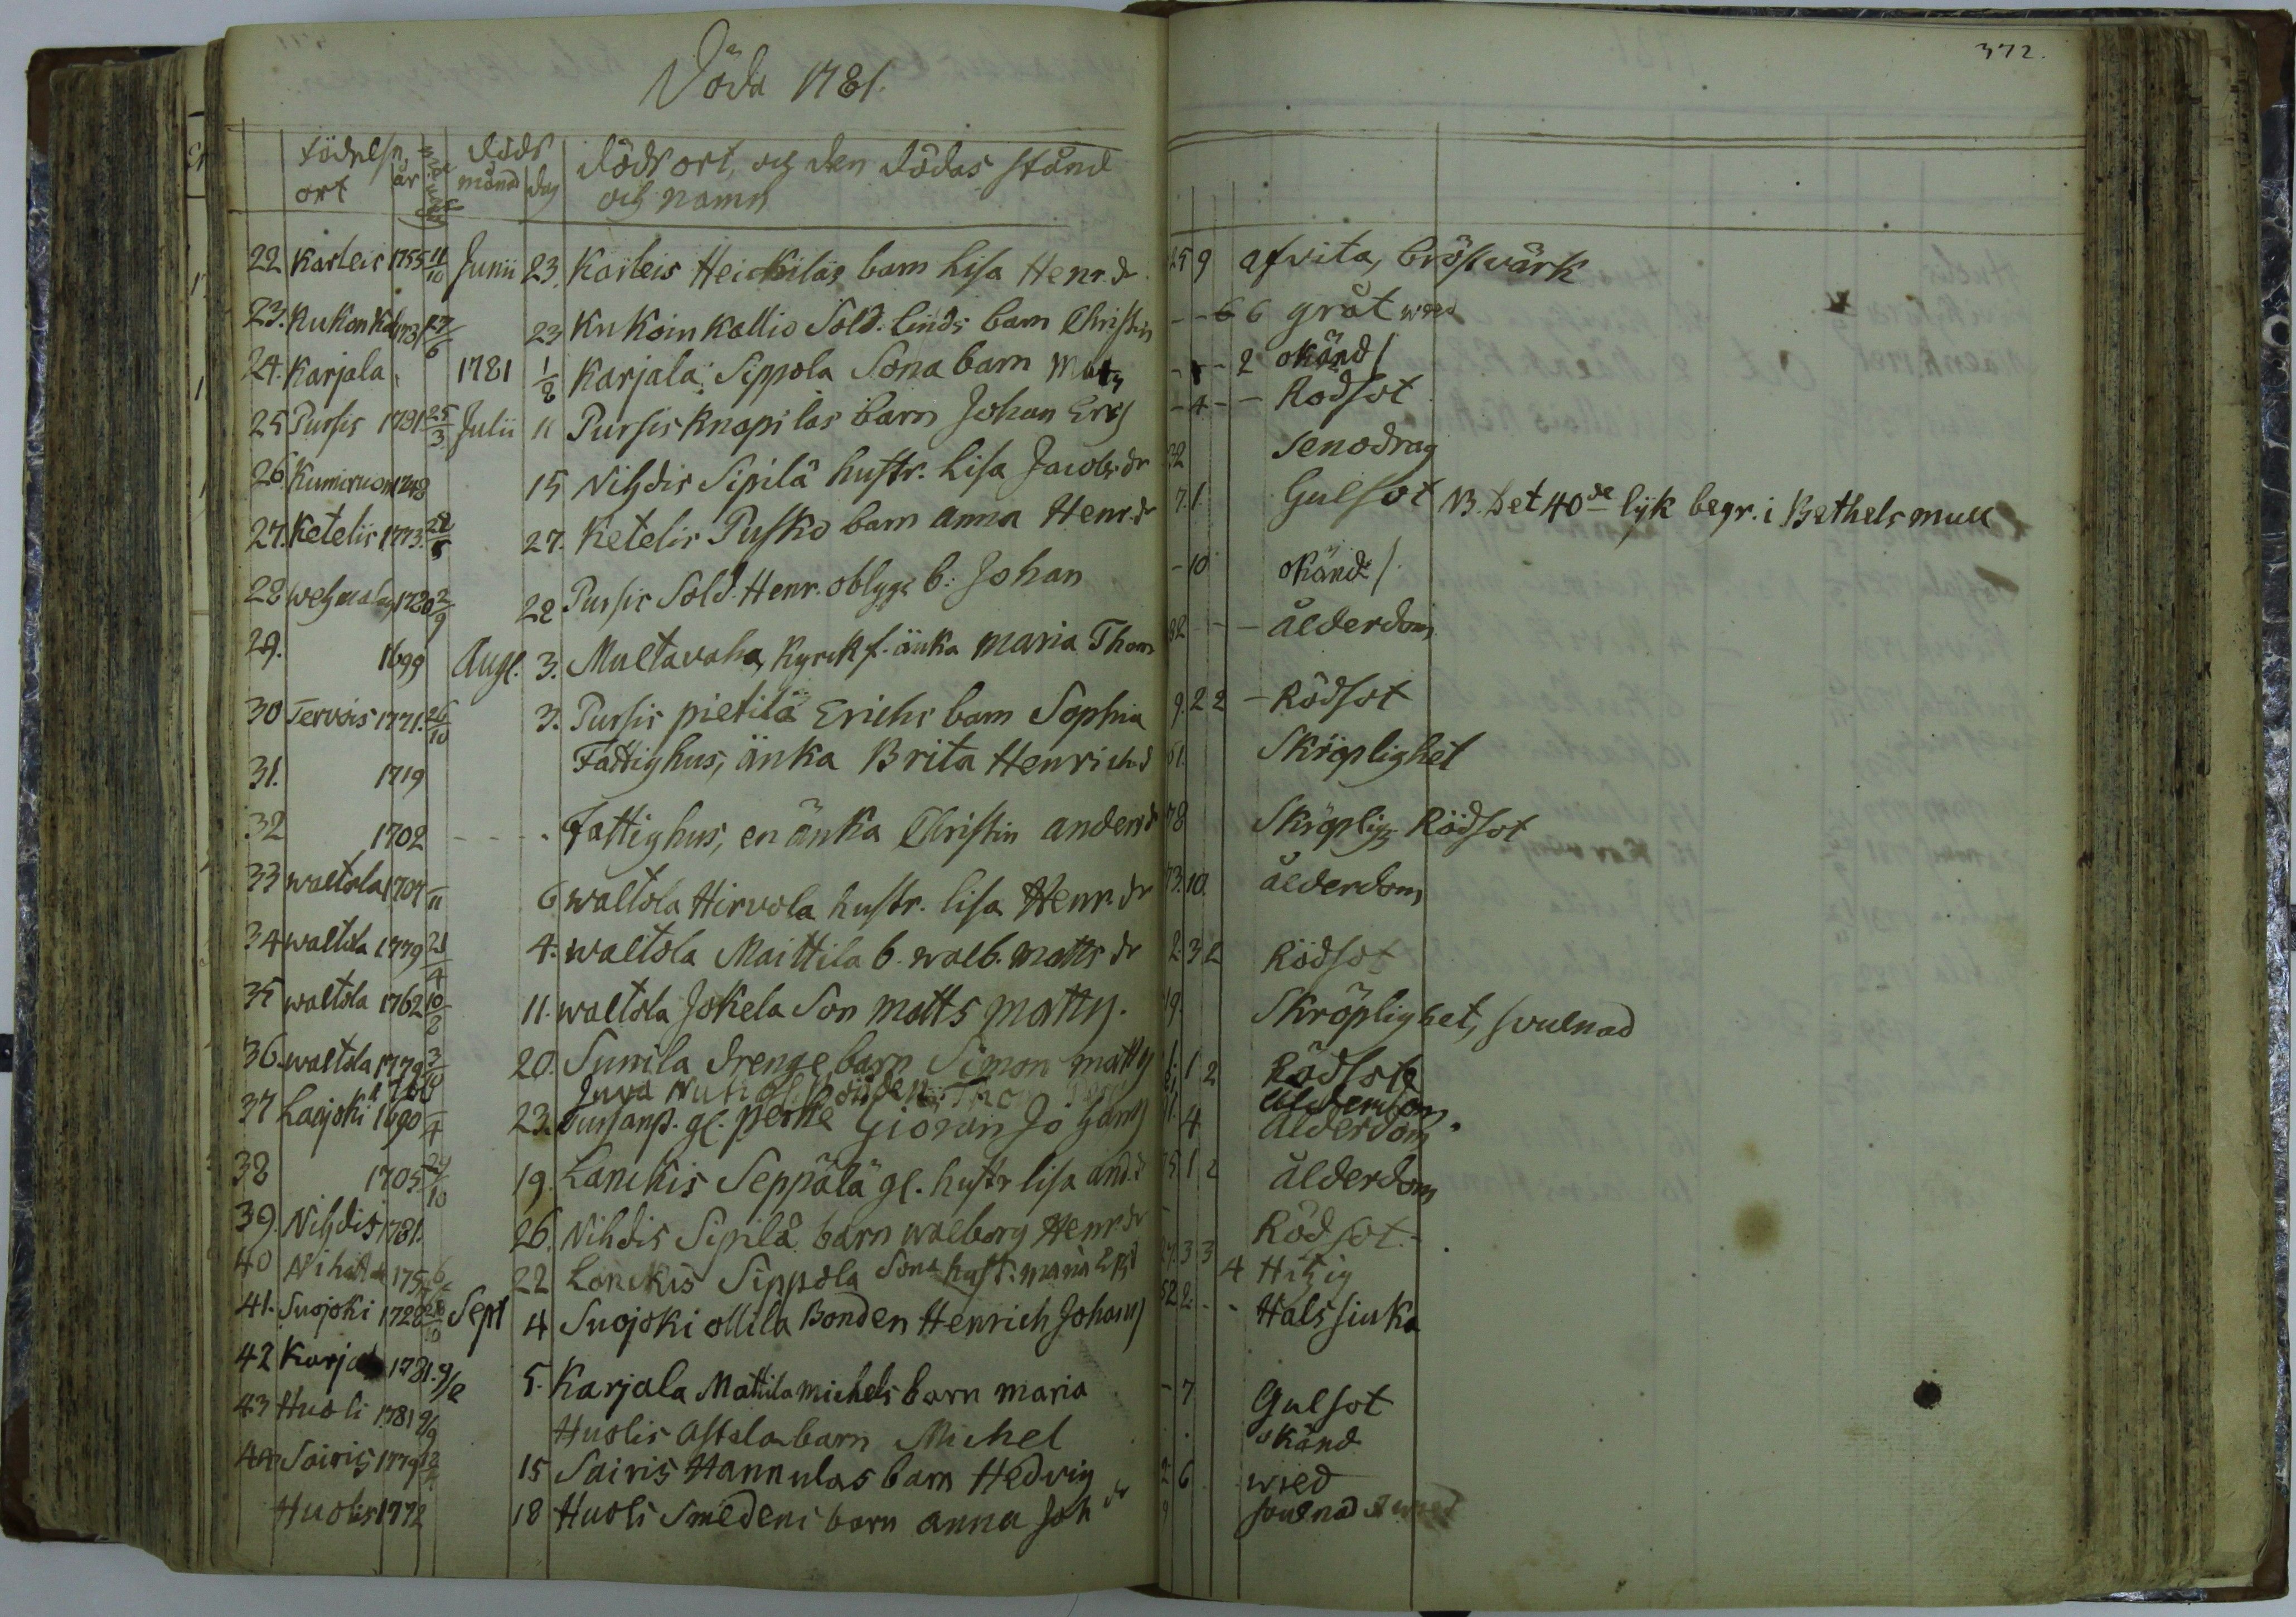 372.
Döda 1781.
födelse ort år döds månad dag döds ort, och den dödas stånd
och namn
22 Karleis 1755 11/10 Junii 23. Karleis Heickilas barn Lisa Henr. dr 25 9 afvita, bröstvärk
23. Kukonkal 1781 17/6 23 Kukoinkallio Sold. Linds barn Christin - - 6 6 gråt wred
24. Karjala 1781 1/8 Karjala Sippola Sona barn Matts - - - 2 okänd
25 Pursis 1781 25/3 Julii 11 Pursis Knapilas barn Johan Ers - 4 - - Rodsot
26 1748 15 Nihdis Sipilä hustr. Lisa Jacobs dr 32 senodrag
27. Ketelis 1773. 27. Ketelis Pusko barn anna Henr. dr 7. 1. Gulsot NB. Det 40de lyk begr. i Bethels mull
28 2/9 28 Pursis Sold. Henr. oblygs b: Johan - 10 okänd
29. 1699 Aug. 3. Multavaha, Kyrck f. änka Maria Thom 82 - - - ålderdom
30 Tervois 1771. 26/10 3. Pursis pietilä Erichs barn Sophia 9. 2 2 - Rödsot
31. 1719 Fattighus, änka Brita Henrichs d 61. Skröplighet
32 1702 - - - . Fattighus, en änka Christin anders d 78 Skröplig Rödsot
33 waltola 1707 11 6 waltola Hirvola hustr. lisa Henr. dr 73. 10. ålderdom
34 waltola 1779 21/4 4. waltola Maittila b. walb. matts dr 2. 3 2 Rödsot
35 waltola 1762 10/8 11. waltola Jokela Son matts matts. 19. Skröplighet, svulnad
36. waltola 1779 3/10 20. Sunila drenge barn Simon matts 1. 1 2 Rödsot
Juva ålderdom
37 Laijoki 1690 23. gl. Giöran Johans 91. 4 ålderdom
38 1705. 24/10 19. Lanckis Seppälä gl. hustr lisa and. d 75 1 2 ålderdom
39. Nihdis 1781. 26. Nihdis Sipilä barn walborg Henr. dr - Rödsot.
40 22 Lanckis Sippola Sona hust. maria 27. 3 3 4 Hitzig
41. Suojoki 1728 Sept 4 Suojoki ollila Bonden Henrich Johans 52 2. - - Halssiuka
42 Karjala 1781. 9/2 5. Karjala Mattila michels barn maria - 7 Gulsot
43 Huoli 1781 9/9 Huolis Astola barn Michel okänd
44 Sairis 1779 15 Sairis Hannulas barn Hedvig 2 6 wred
Huolis 1772 18 Huoli Smedens barn anna Joh dr 9 svulnad